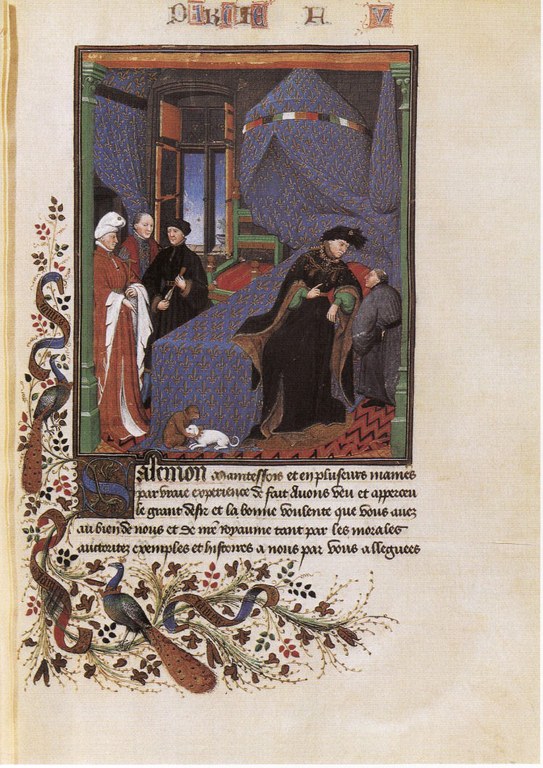 PARTIE
Salemon Maintesfois et en plusieurs manieres
par vraie experience de fait Auons veu et apperceu
le grant desir et la bonne voulente que vous auez
au bien de nous et de nre Royaume tant par les morales
auctoritez exemples et histoires a nous par vous alleguees